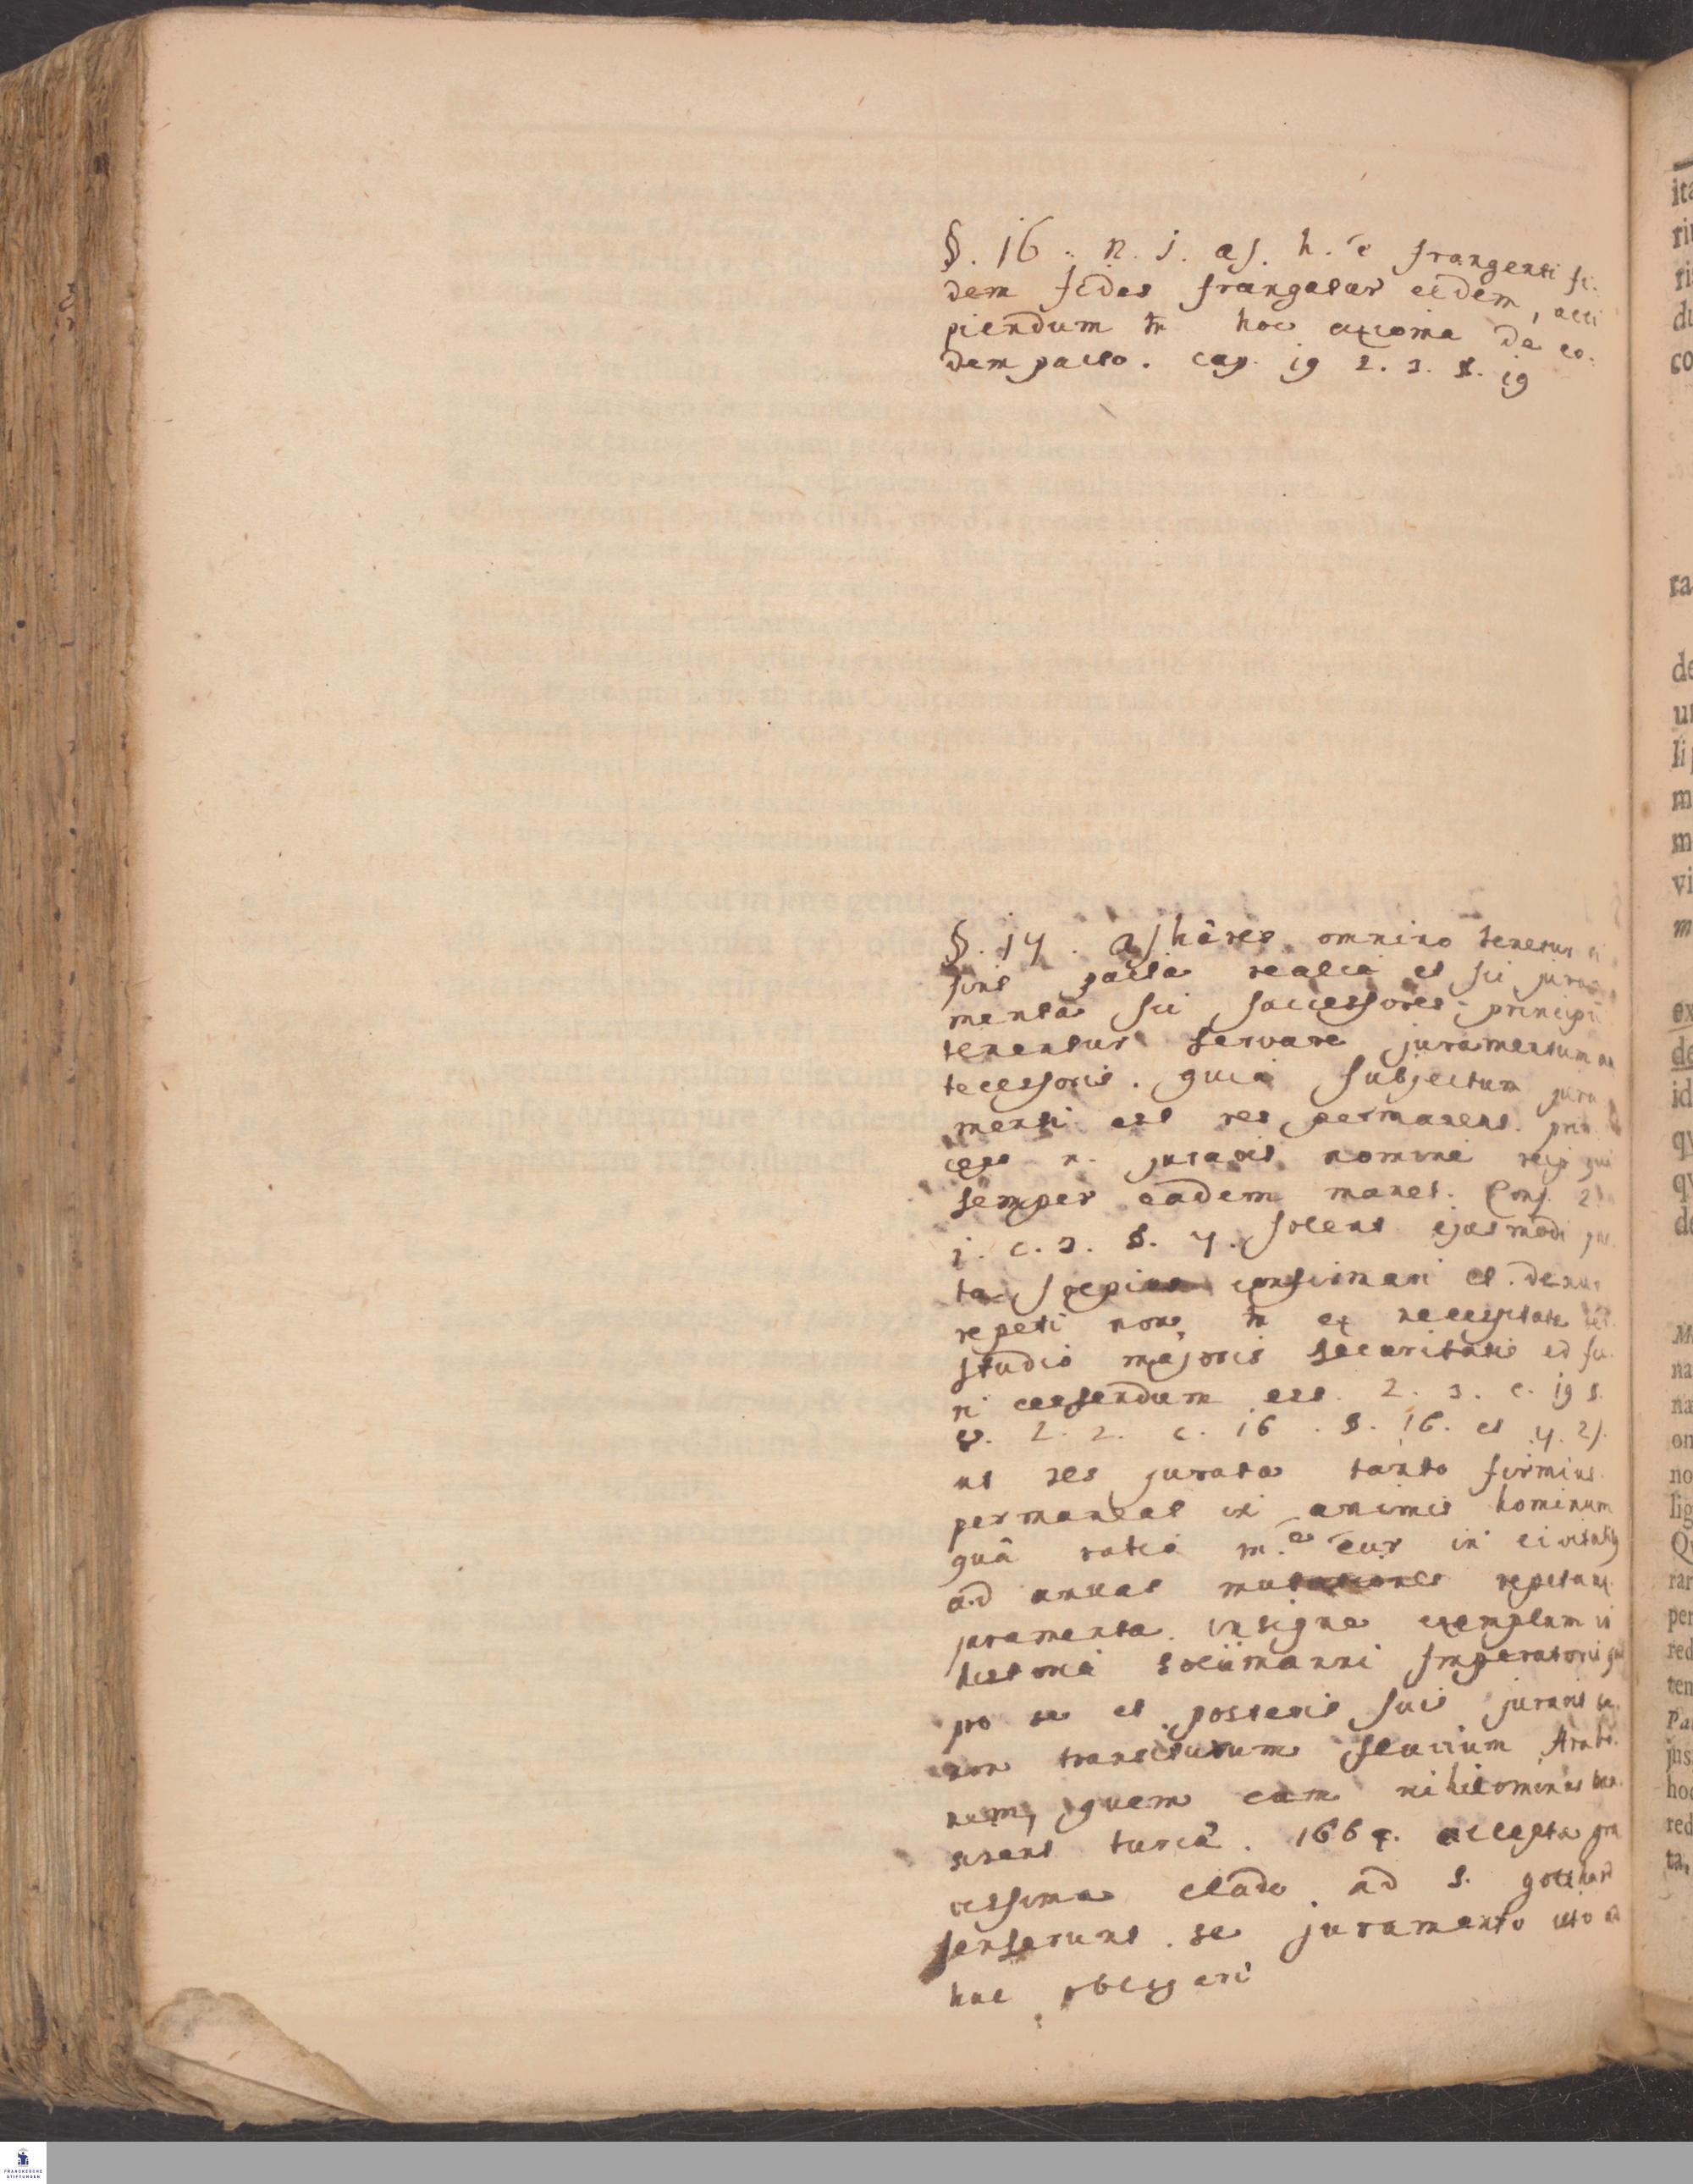 §. 16. n. j. as. h. e frangenti fi-
dem fides frangatur eidem, acci
piendum tn hoc axioma de eo-
dem pacto. cap. 19 2. 3. §. 19
§. 17. as hæres omnino tenetur si
sint pacta realia et sic jura
menta sic successores principii
tenentur servare juramentum an
tecessoris. quia subjectum jura
menti est res permanens. prin
ceps n. juravit nomine reip qui
semper eadem manet. Conf. 2
j. c. 3. §. 4. solent ejusmodi
ta sæpius confirmari et denuo
repeti non tn ex necessitate
studio majoris securitatis id fie-
ri censendum est. 2. 3. c. 19 §.
2. 2. c. 16. §. 16. et 4. 2).
ut res jurata tanto firmius
permaneat in animis hominum
quâ ratiõ in civitatib
ad annuas mutationes repetunt
juramenta. insigne exemplum in
historia Solimanni Imperatoris qui
pro se et posteris suis juravit se
non transiturum fluvium Arabo-
num, quem cum nihilominus tran-
sirent turcæ. 1664. accepta gra
vissima clade ad S. gotthard
senserunt se juramento isto ad
huc obligari
ita
ri
ri
du
co
ra
de
u
li
m
m
vi
m
ex
de
id
qv
qv
de
M
na
na
on
no
lig
Q
rar
per
red
ten
Pa
jus
hoc
red
ta,
FRANCKESCHE
STIFTUNGEN